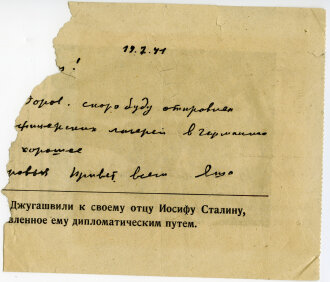 19.7.41
!
доров. скоро буду отправлен
фицерских лагерей в Германию
хорошее
ровья Привет всем Яша
Джугашвили к своему отцу Иосифу Сталину,
вленное ему дипломатическим путем.